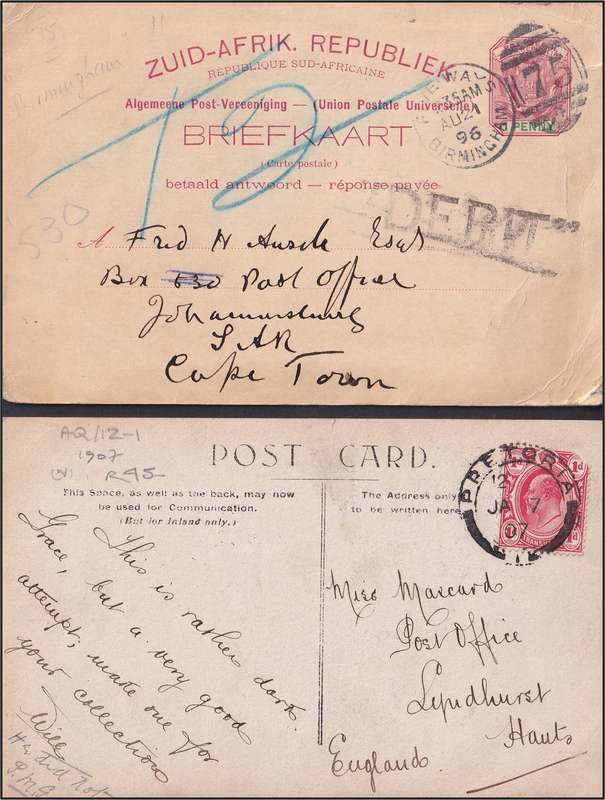 35 "
Birmingham
ZUID-AFRIK. REPUBLIEK.
RÉPUBLIQUE SUD-AFRICAINE
Algemeene Post-Vereeniging — (Union Postale Universelle)
BRIEFKAART
(Carte postale)
betaald antwoord — réponse payée
WAL
AU 21
96
BIRMINGHAM
75
PENNY
T
"DEBIT"
530
A Fred H Esq
Box 630 Post Office
Johannesburg
SAR
Cape Town
AQ/12-1
1907
R45-
POST CARD.
This Space, as well as the back, may now
be used for Communication.
(But for Inland only.)
The Address only
to be written here
PRETORIA
12
JA 7
07
1d
Grace, This is rather dark.
but a very good
attempt; make one for
your collection
Will
He did not
Miss Mascard
Post Office
Lyndhurst
Hants
England.